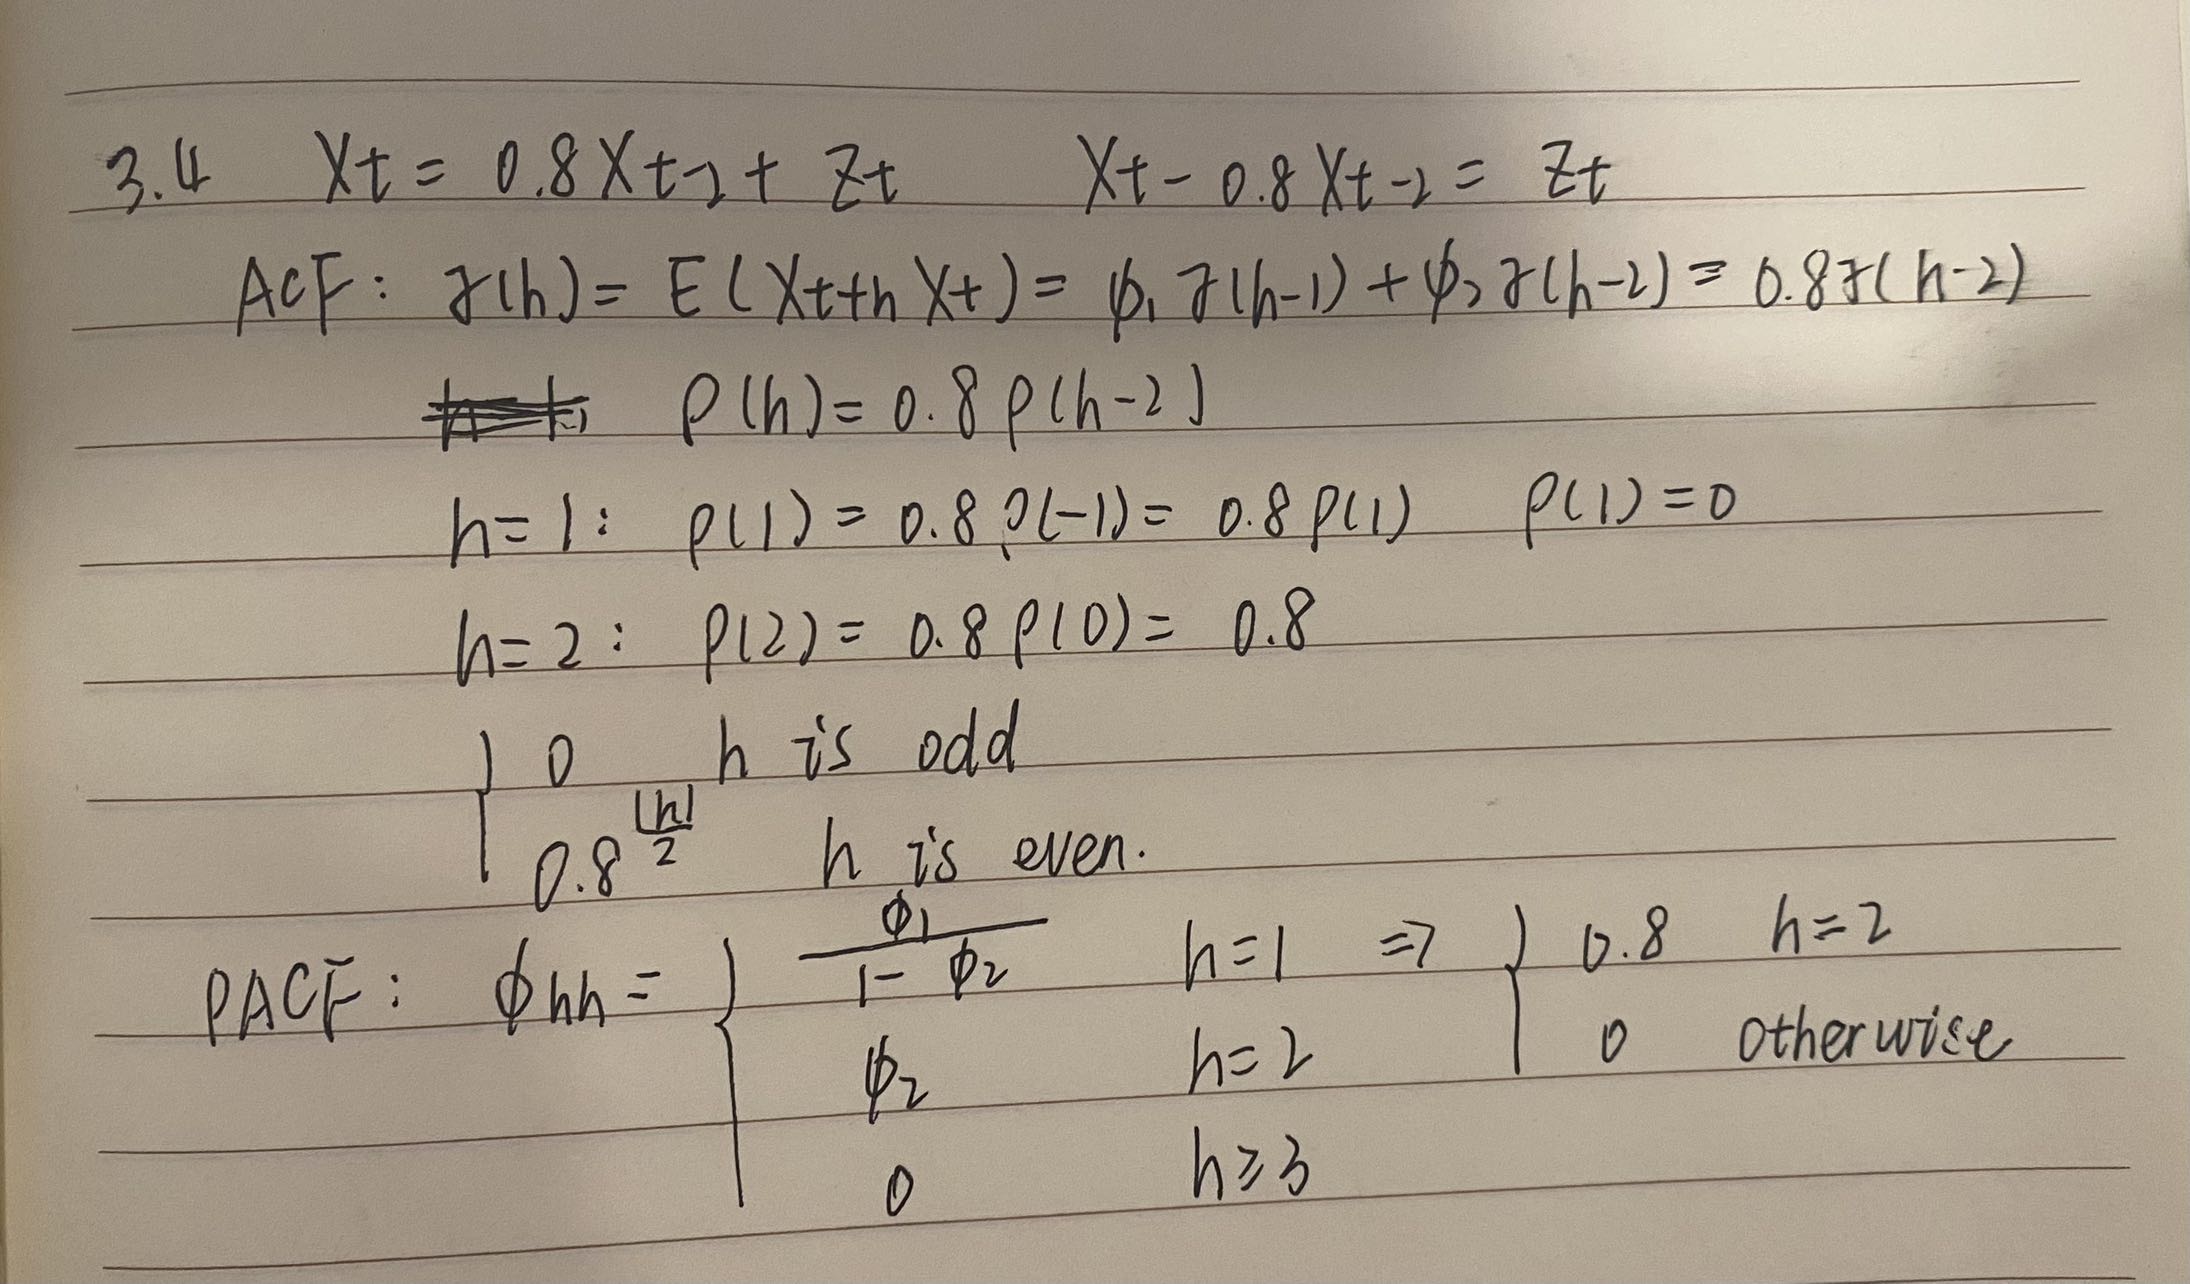 3.4 Xt = 0.8Xt-2 + Zt Xt - 0.8Xt-2 = Zt
ACF: γ(h) = E(Xt+h Xt) = ϕ1 γ(h-1) + ϕ2 γ(h-2) = 0.8γ(h-2)
ρ(h) = 0.8ρ(h-2)
h=1: ρ(1) = 0.8ρ(-1) = 0.8ρ(1) ρ(1)=0
h=2: ρ(2) = 0.8ρ(0) = 0.8
{ 0 h is odd
0.8^(|h|/2) h is even.
PACF: ϕhh = { ϕ1/(1-ϕ2) h=1 => { 0.8 h=2
ϕ2 h=2 0 otherwise
0 h≥3